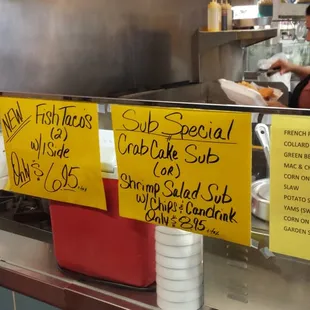 NEW Fish Tacos
(2)
w/1 Side
Only $6.95 +tax
Sub Special
Crab Cake Sub
(OR)
Shrimp Salad Sub
w/Chips & Can drink
Only $8.95 +tax
FRENCH
COLLARD
GREEN BE
MAC & CH
CORN ON
SLAW
POTATO S
YAMS (SW
CORN ON
GARDEN S